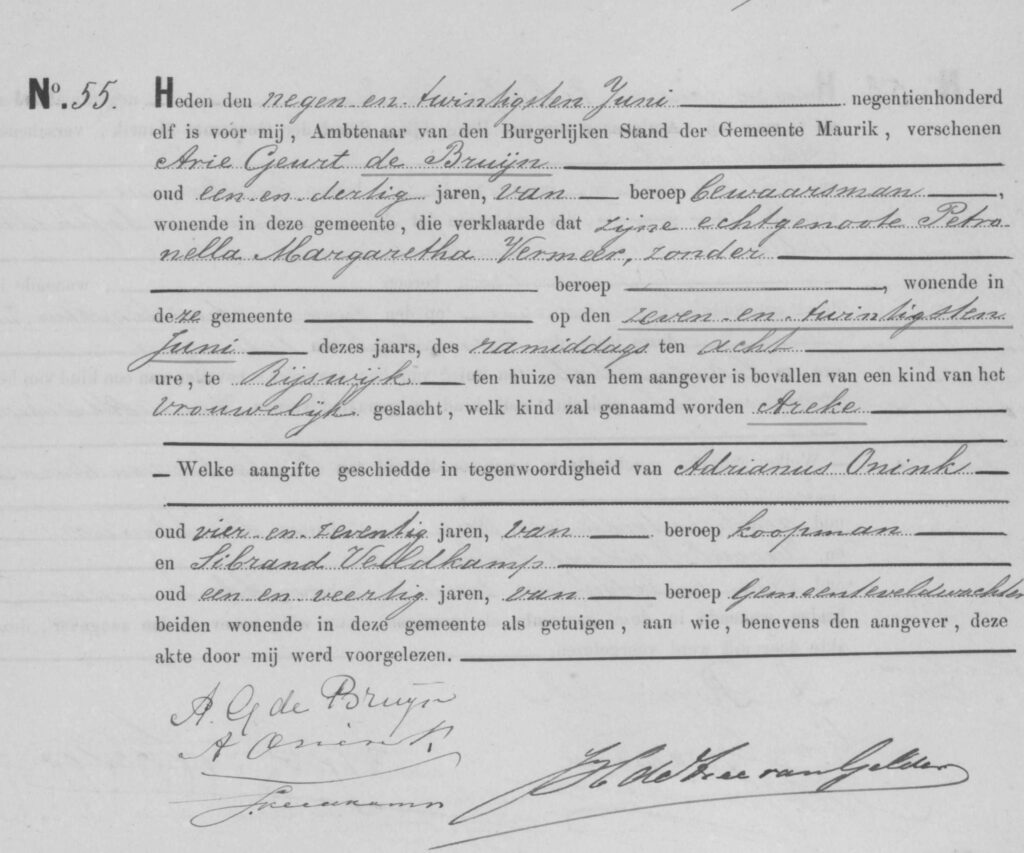 No. 55. Heden den negen en twintigsten Juni negentienhonderd
elf is voor mij, Ambtenaar van den Burgerlijken Stand der Gemeente Maurik, verschenen
Arie Geurt de Bruijn
oud een en dertig jaren, van beroep bewaarsman,
wonende in deze gemeente, die verklaarde dat zijne echtgenoote Petro-
nella Margaretha Vermeer, zonder
beroep, wonende in
deze gemeente op den zeven en twintigsten
Juni dezes jaars, des namiddags ten acht
ure, te Rijswijk ten huize van hem aangever is bevallen van een kind van het
vrouwelijk geslacht, welk kind zal genaamd worden Areke
Welke aangifte geschiedde in tegenwoordigheid van Adrianus Onink
oud vier en zeventig jaren, van beroep koopman
en Sibrand Veldkamp
oud een en veertig jaren, van beroep gemeenteveldwachter
beiden wonende in deze gemeente als getuigen, aan wie, benevens den aangever, deze
akte door mij werd voorgelezen.
A. G de Bruijn
A Onink
de Kree van Gelder